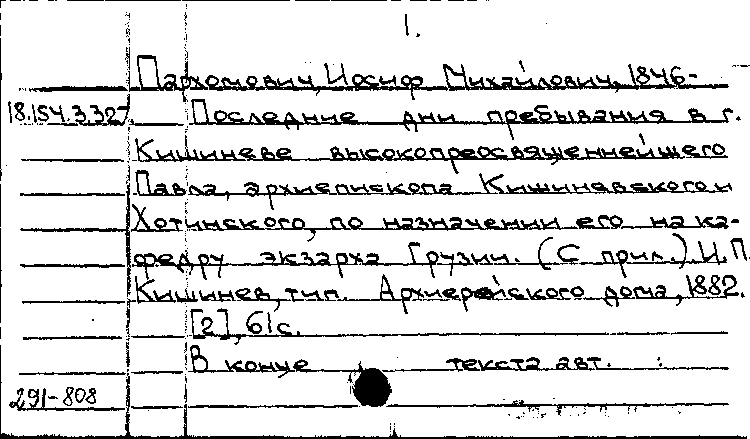 1.
Пархомович, Иосиф Михайлович, 1846-
18.154.3.327. Последние дни пребывания в г.
Кишиневе высокопреосвященнейшего
Павла, архиепископа Кишиневского и
Хотинского, по назначении его на ка-
федру экзарха Грузии. (С прил.). И. П.
Кишинев, тип. Архиерейского дома, 1882.
[2], 61 с.
В конце текста авт. :
291-808